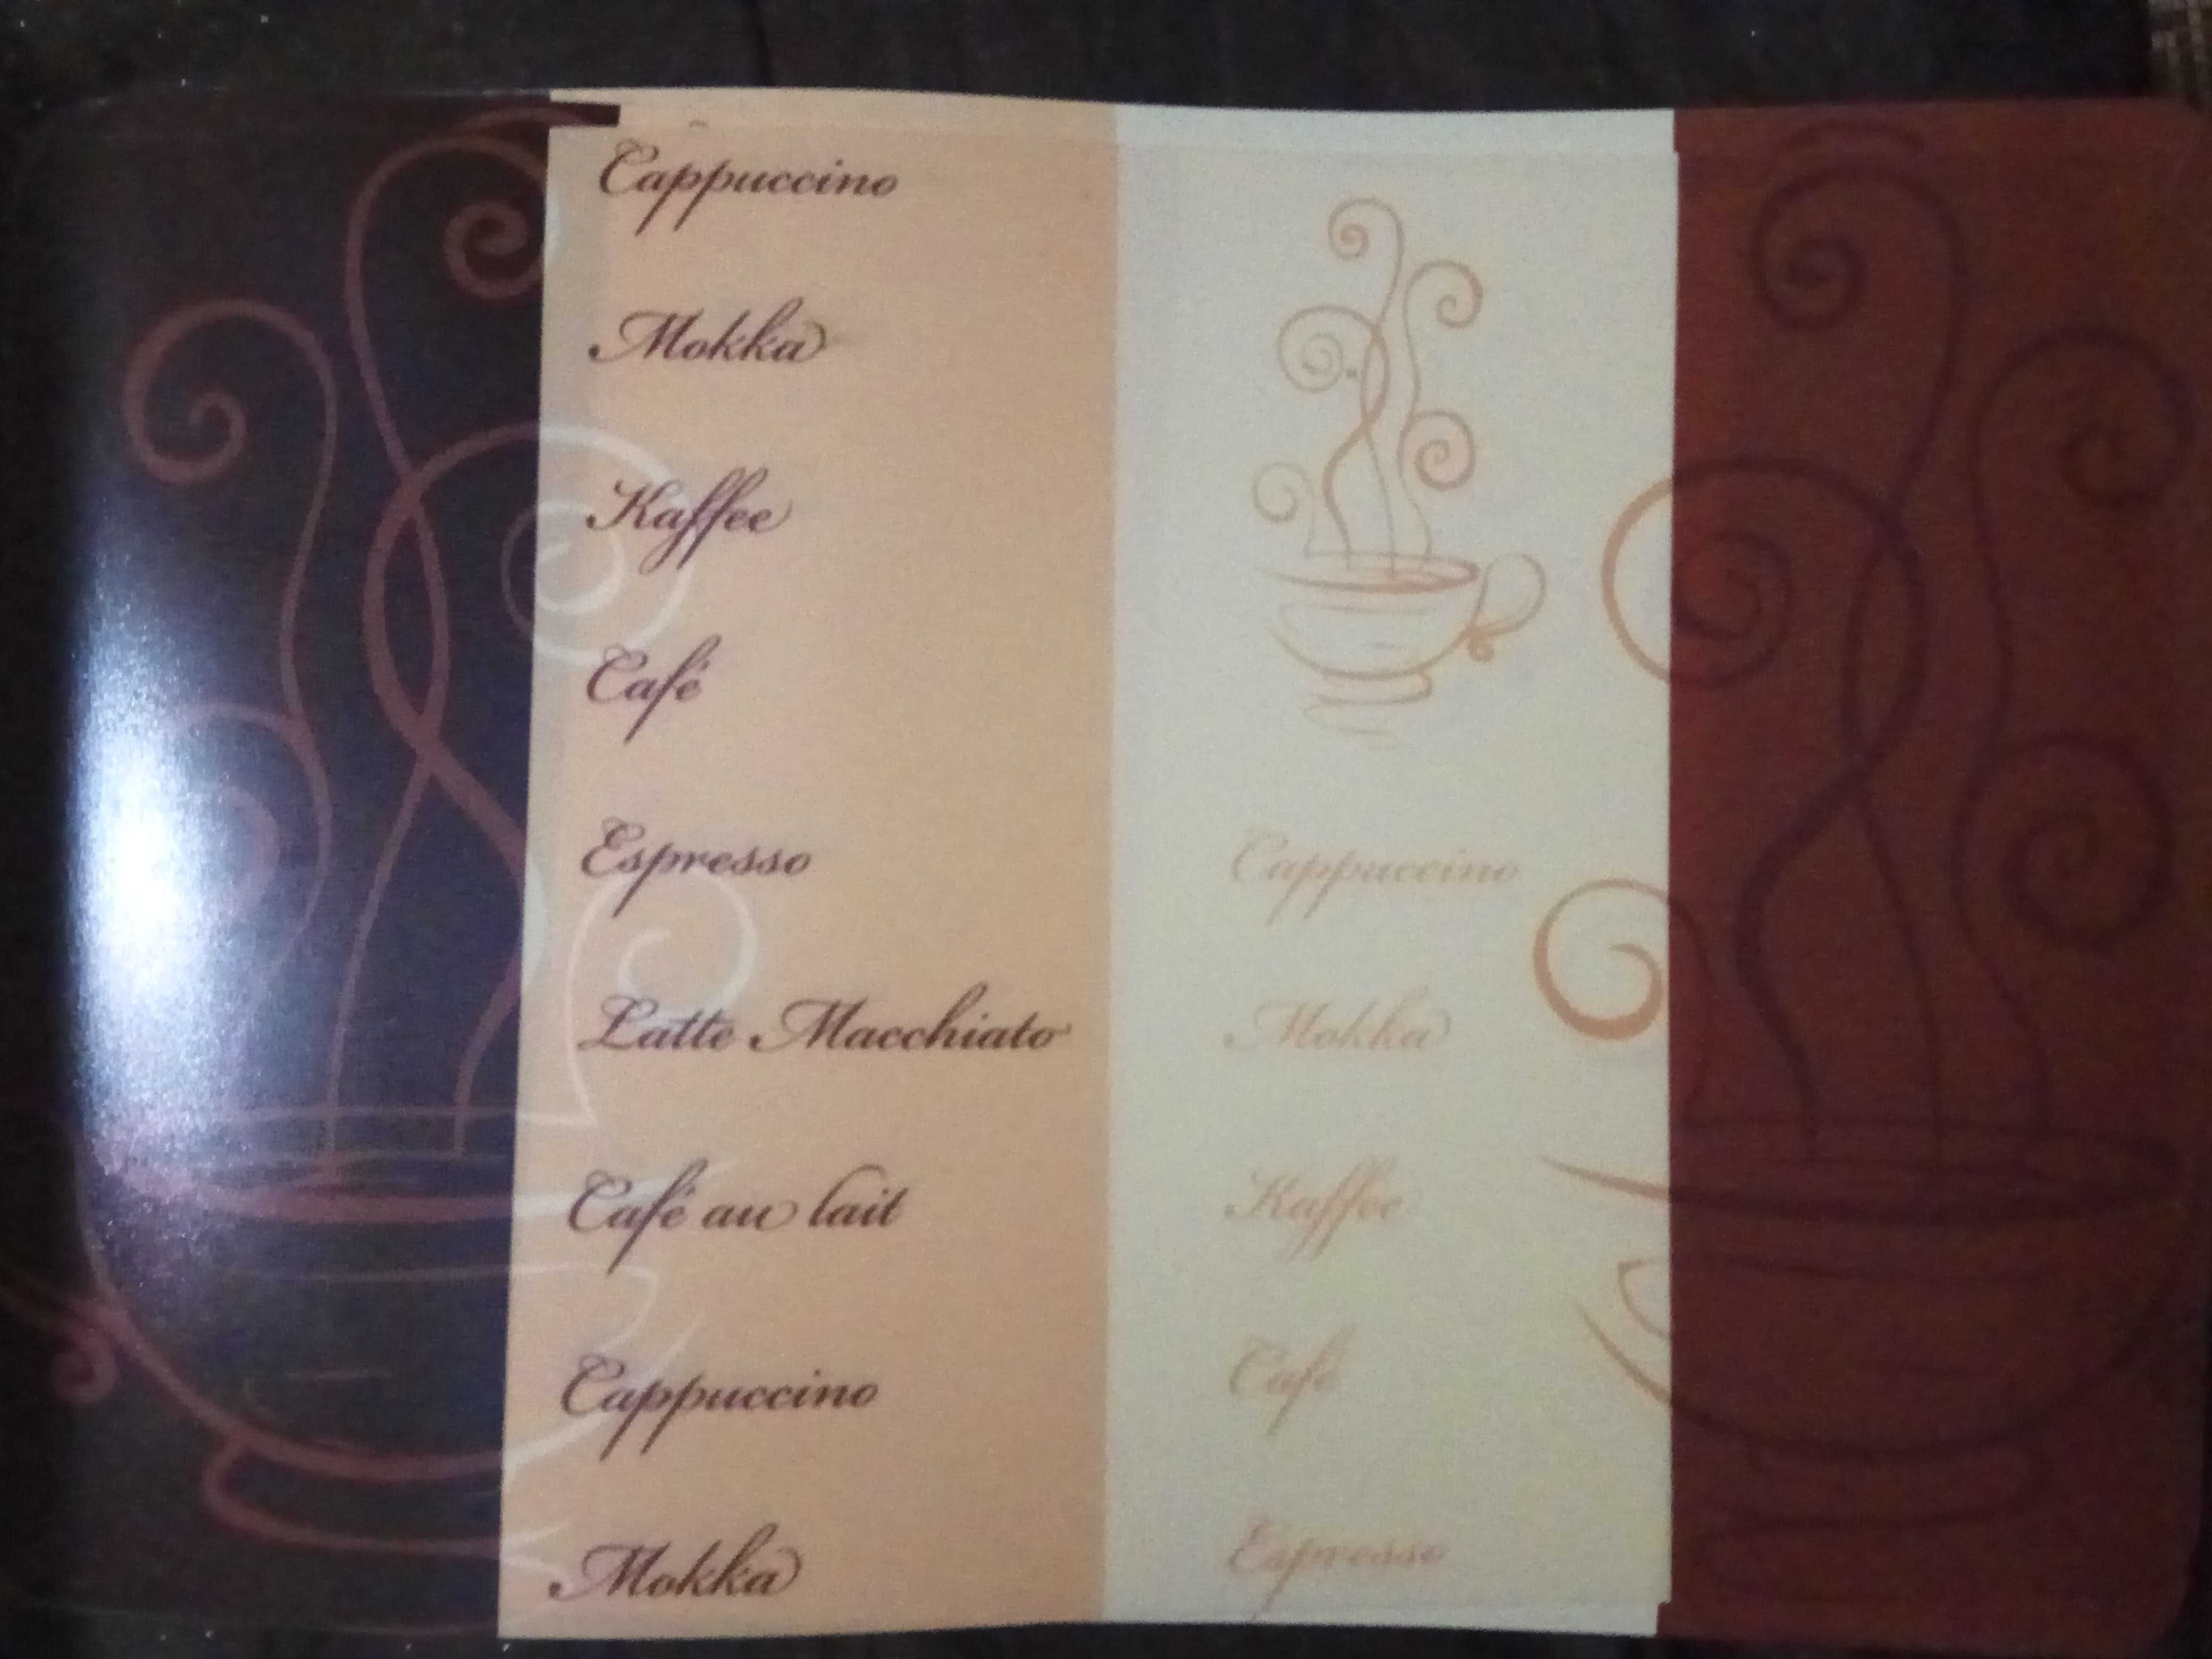 Cappuccino
Mokka
Kaffee
Café
Espresso
Latte Macchiato
Café au lait
Cappuccino
Mokka
Cappuccino
Mokka
Kaffee
Café
Espresso